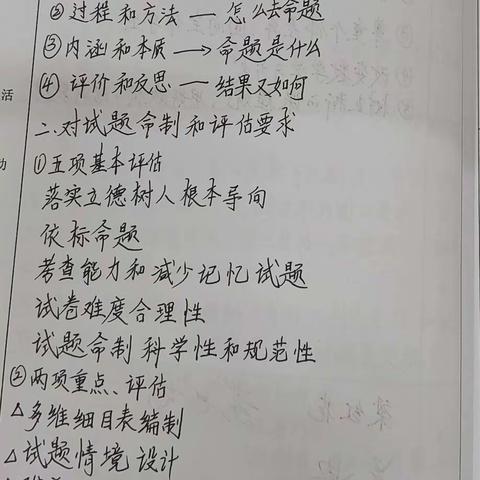 ②过程和方法——怎么去命题
③内涵和本质——>命题是什么
④评价和反思——结果又如何
活
二.对试题命制和评估要求
①五项基本评估
落实立德树人根本导向
依标命题
考查能力和减少记忆试题
试卷难度合理性
试题命制科学性和规范性
②两项重点、评估
△多维细目表编制
△试题情境设计